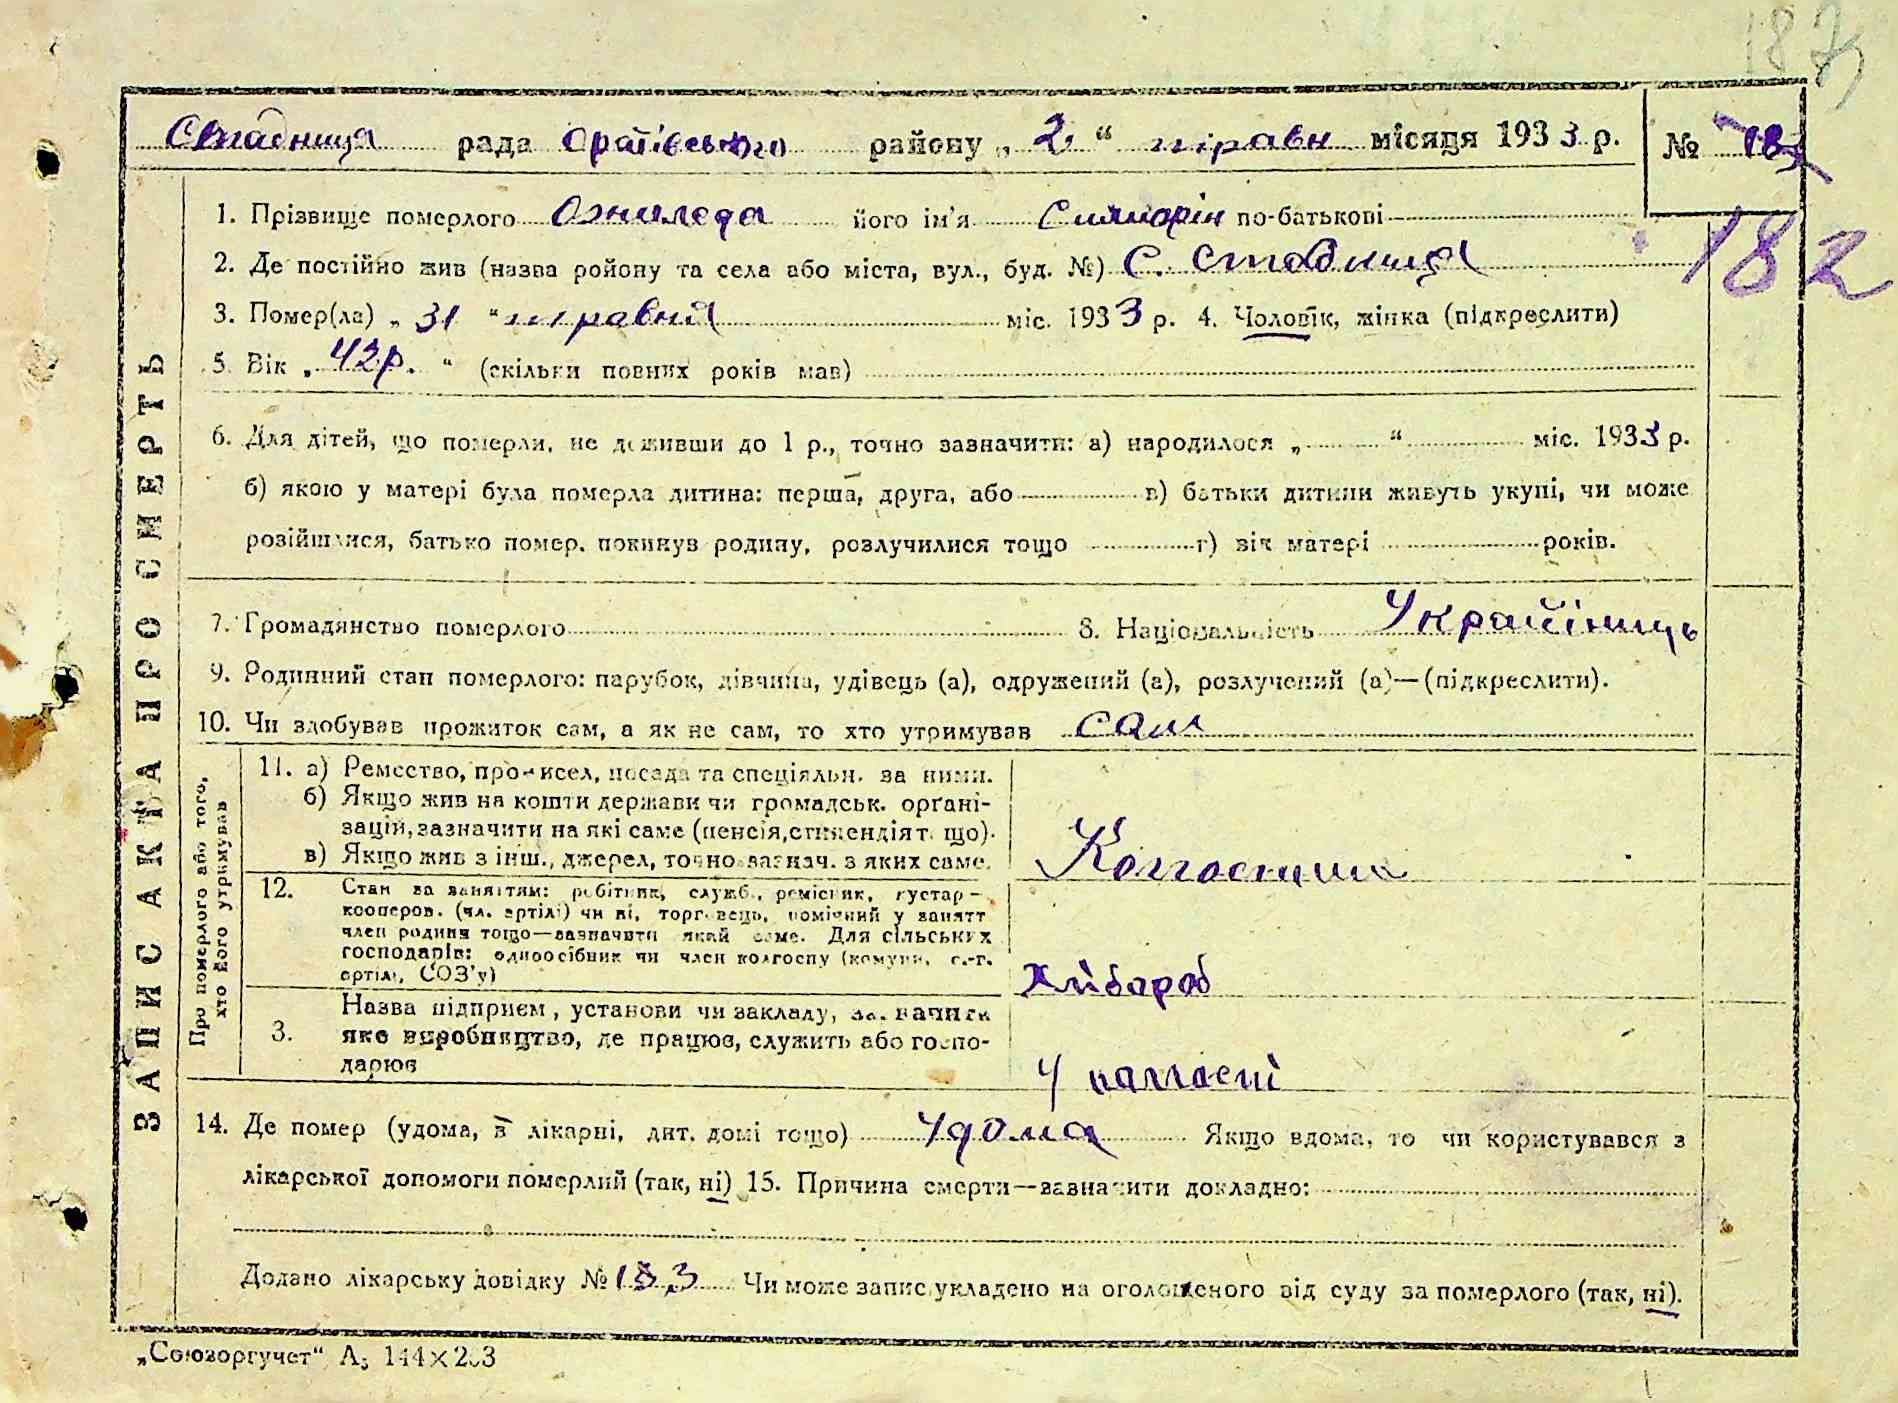 187
Стадниця рада Оратівського району „ 2 “ травн місяця 1933 р. № 182
182
1. Прізвище померлого Ожиледа його ім'я по-батькові
2. Де постійно жив (назва ройону та села або міста, вул., буд. №) С. Стадниця
3. Помер(ла) „ 31 “ травня міс. 1933 р. 4. Чоловік, жінка (підкреслити)
5. Вік „ 42р. “ (скільки повних років мав)
6. Для дітей, що померли, не доживши до 1 р., точно зазначити: а) народилося „ “ міс. 1933 р.
б) якою у матері була померла дитина: перша, друга, або в) батьки дитини живуть укупі, чи може
розійшлися, батько помер, покинув родину, розлучилися тощо г) вік матері років.
7. Громадянство померлого 8. Національність Українець
9. Родинний стан померлого: парубок, дівчина, удівець (а), одружений (а), розлучений (а)—(підкреслити).
10. Чи здобував прожиток сам, а як не сам, то хто утримував сам
ЗАПИС АКТА ПРО СМЕРТЬ
Про померлого або того, хто його утримував
11. а) Ремество, промисел, посада та спеціяльн. за ними.
б) Якщо жив на кошти держави чи громадськ. орґані-
зацій, зазначити на які саме (пенсія, стипендія т. що).
в) Якщо жив з інш., джерел, точно зазнач. з яких саме.
Колгоспник
12. Стан за заняттям: робітник, служб., ремісник, кустар—
кооперов. (чл. артілі) чи ні, торговець, помічний у занятт
член родини тощо—зазначити який саме. Для сільських
господарів: одноосібник чи член колгоспу (комуни, с.-г.
артілі, СОЗ'у)
Хлібороб
3. Назва підприєм, установи чи закладу, зазначити
яке виробництво, де працює, служить або госпо-
дарює
У колгоспі
14. Де помер (удома, в лікарні, дит. домі тощо) Удома Якщо вдома, то чи користувався з
лікарської допомоги померлий (так, ні) 15. Причина смерти—зазначити докладно:
Додано лікарську довідку № 183 Чи може запис укладено на оголошеного від суду за померлого (так, ні).
„Союзоргучет“ А5 144×203